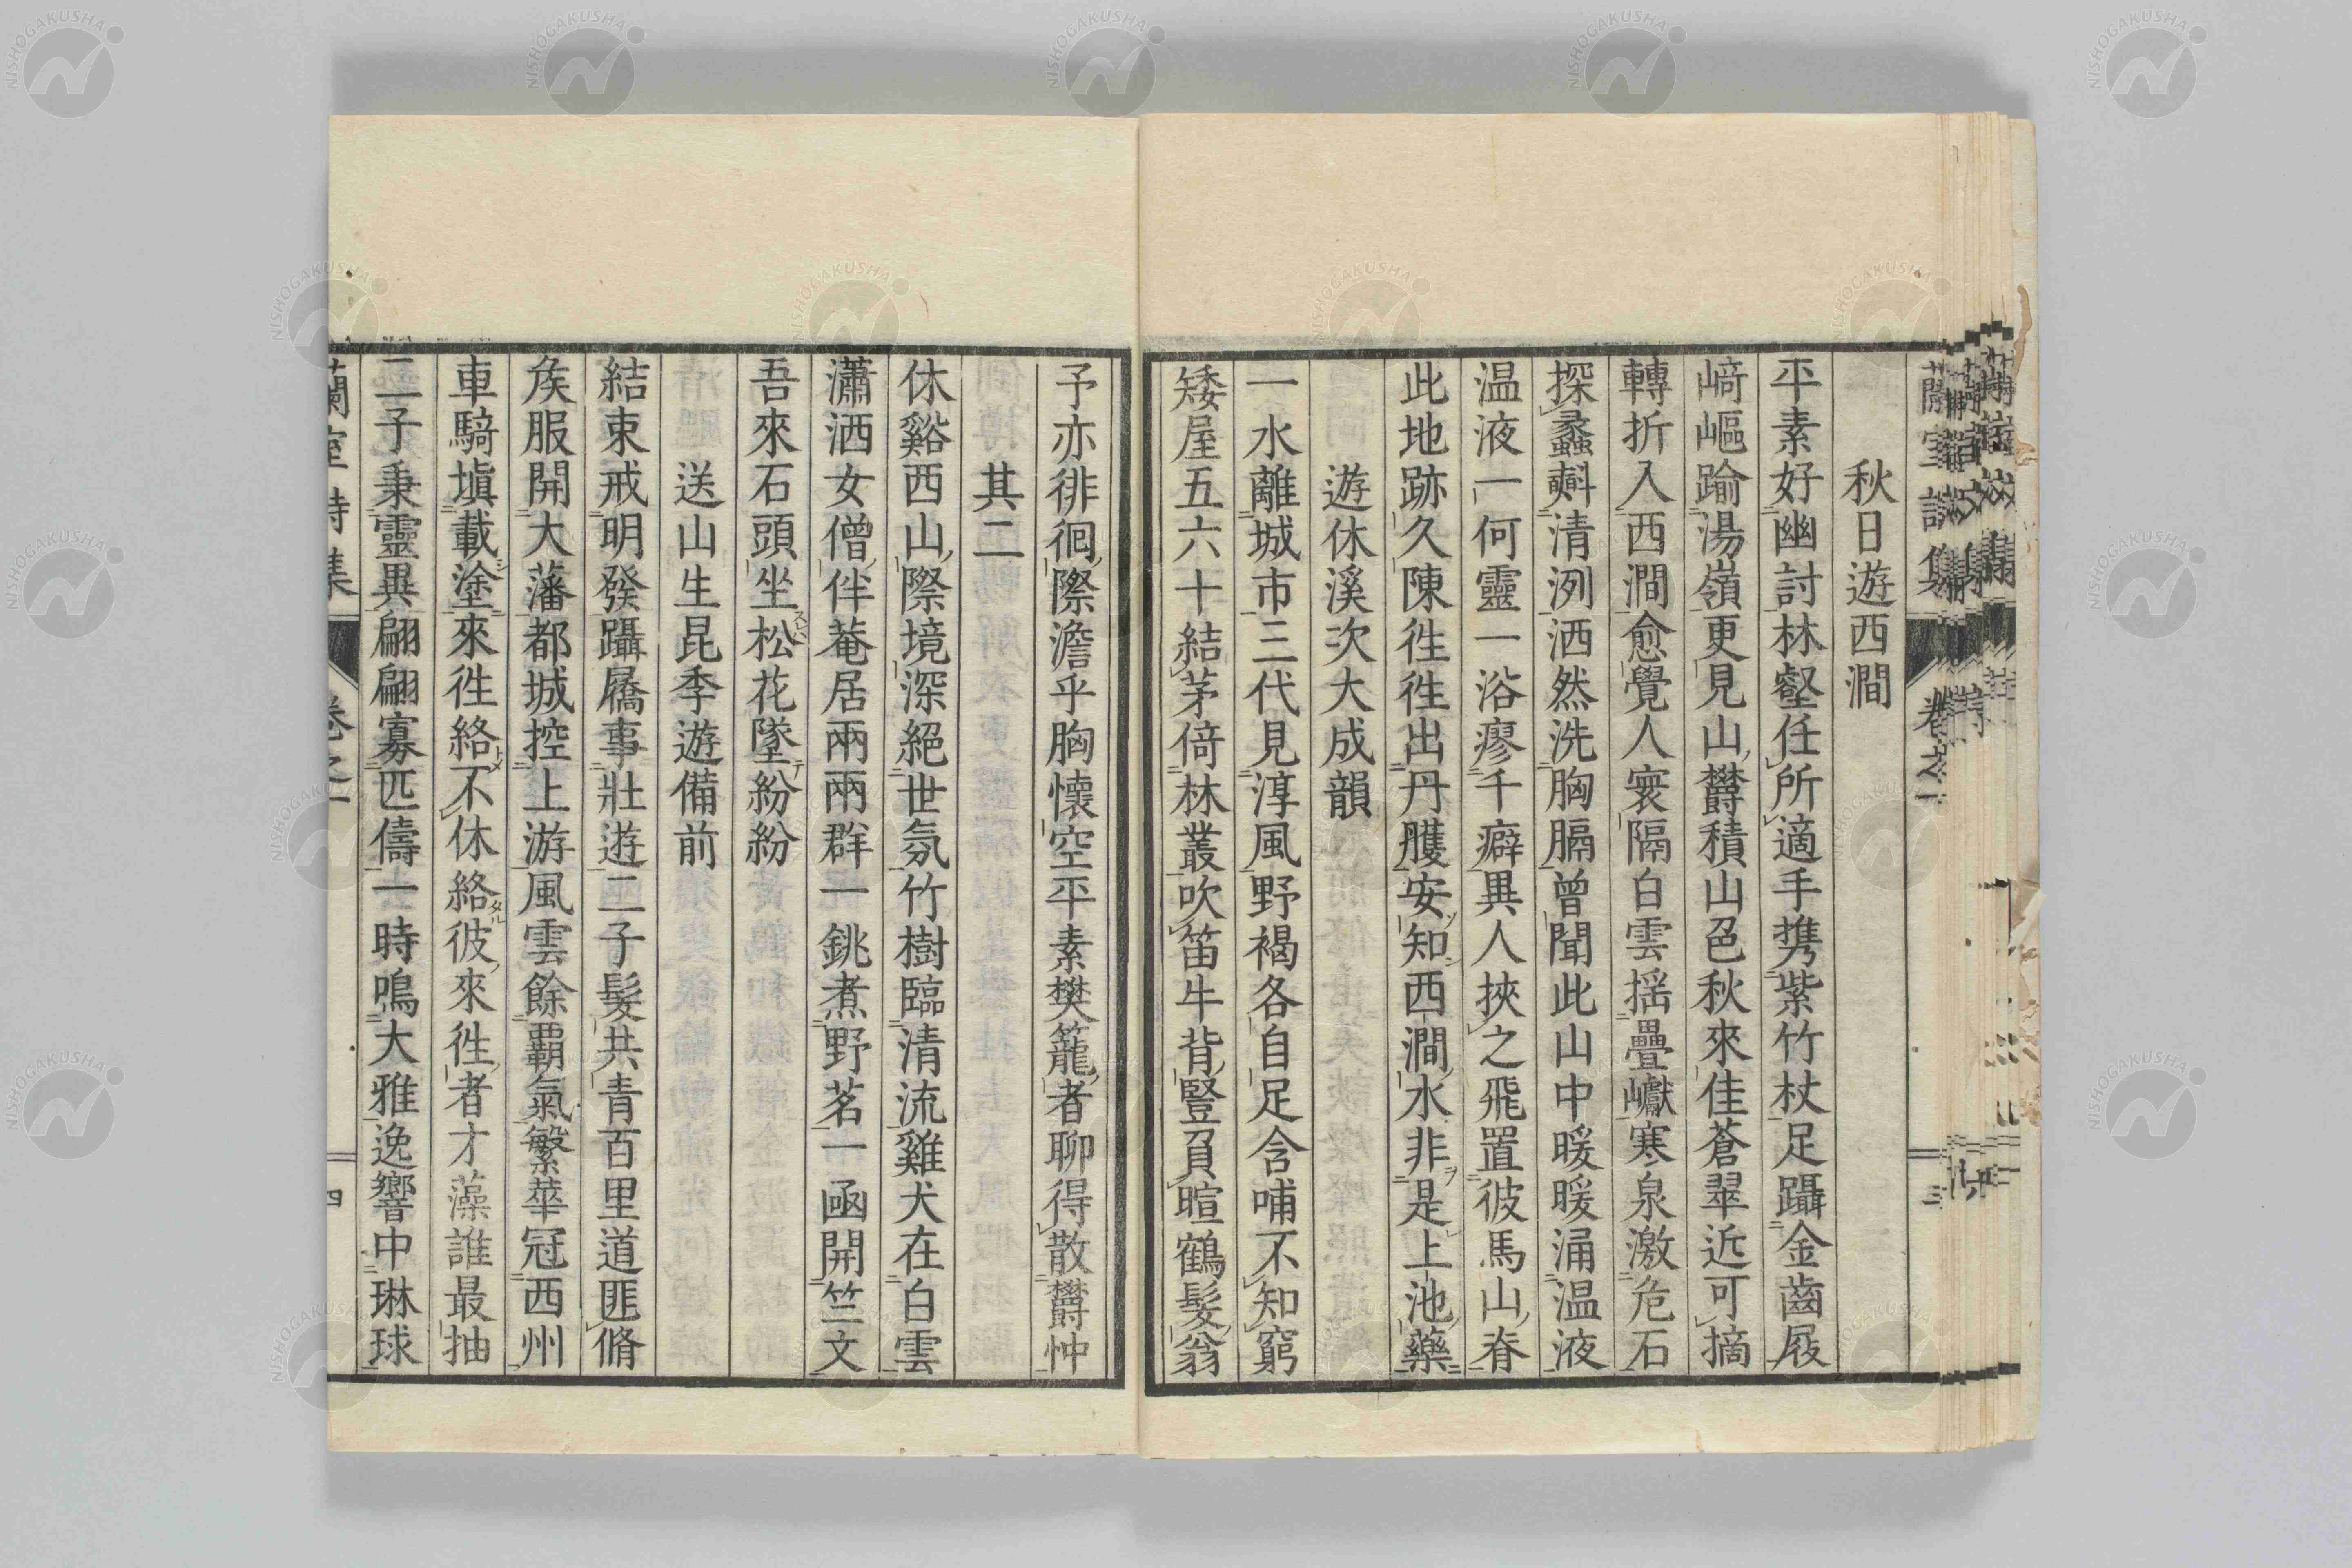 秋日遊西澗
平素好幽討林壑任所適手携紫竹杖足躡金齒屐
﨑嶇踰湯嶺更見山欝積山色秋來佳蒼翠近可摘
轉折入西澗愈覺人寰隔白雲揺疊巘寒泉激危石
探蠡㪺清洌洒然洗胸膈曾聞此山中暖暖涌温液
温液一何靈一浴瘳千癖異人挾之飛置彼馬山脊
此地跡久陳徃徃出丹雘安知西澗水非是上池藥
遊休溪次大成韻
一水離城市三代見淳風野褐各自足含哺不知窮
矮屋五六十結茅倚林叢吹笛牛背豎負暄鶴髮翁
予亦徘徊際澹乎胸懷空平素樊籠者聊得散欝忡
其二
休谿西山際境深絕世氛竹樹臨清流雞犬在白雲
瀟洒女僧伴菴居兩兩群一銚煮野茗一凾開竺文
吾來石頭坐松花墜紛紛
送山生昆季遊備前
結束戒明發躡屩事壯遊二子髮共青百里道匪脩
矦服開大藩都城控上游風雲餘覇氣繁華冠西州
車騎塡載塗來徃絡不休絡彼來徃者才藻誰最抽
二子秉靈異翩翩寡匹儔一時鳴大雅逸響中琳球
蘭室詩集 卷之一 四